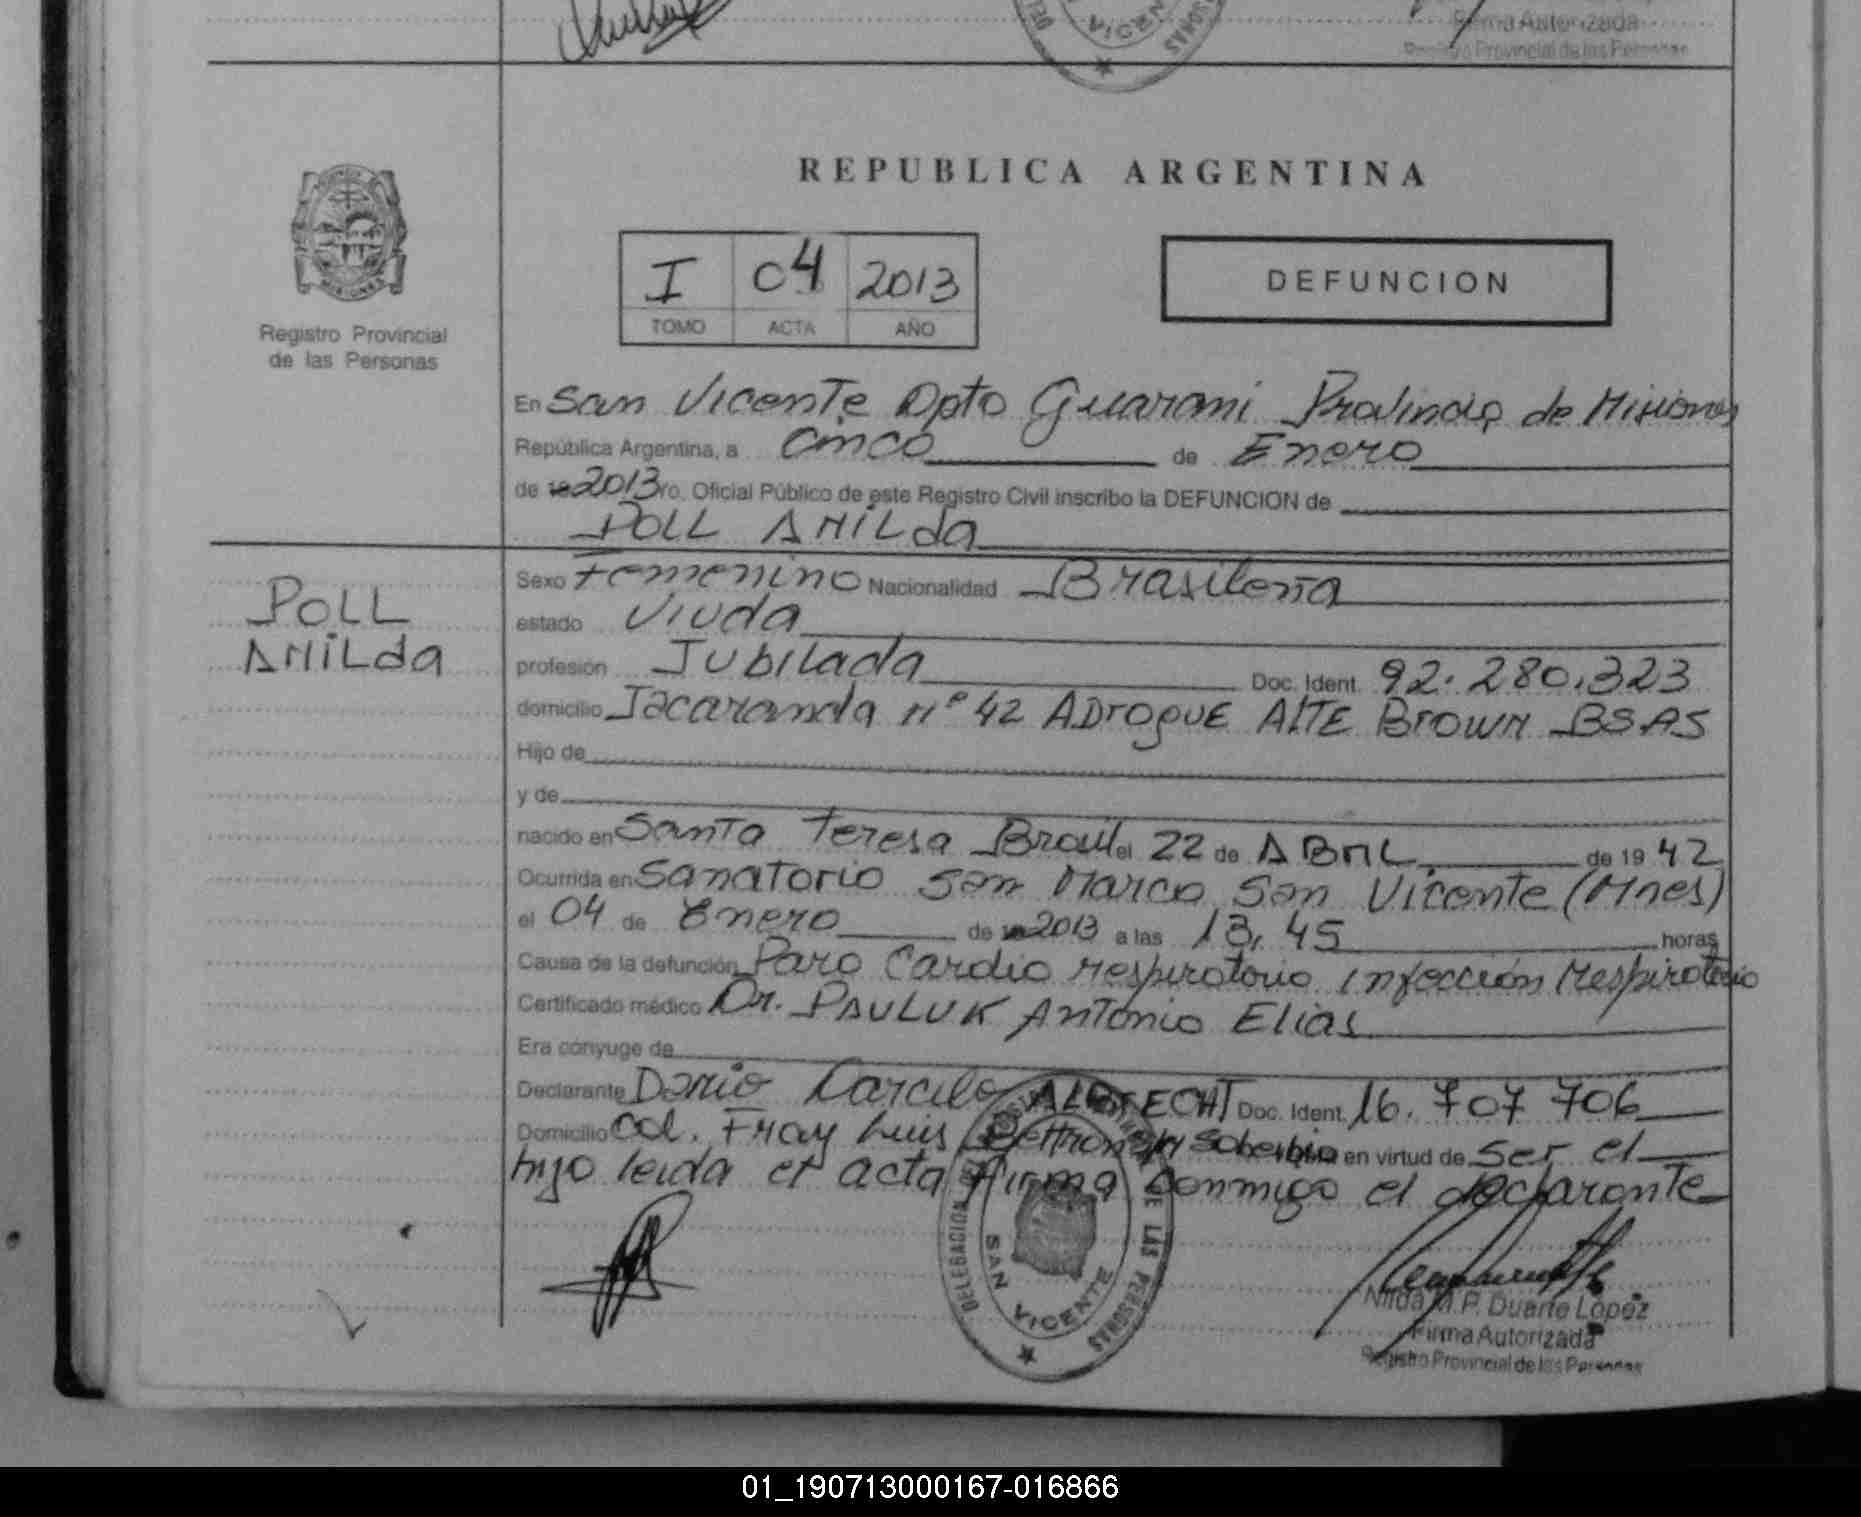 Firma Autorizada
Registro Provincial de las Personas
VICEN
REPUBLICA ARGENTINA
MISIONES
Registro Provincial
de las Personas
I 04 2013
TOMO ACTA AÑO
DEFUNCION
En San Vicente Dpto Guarani Provincia de Misiones
República Argentina, a cinco de Enero
de 19 2013 ro. Oficial Público de este Registro Civil inscribo la DEFUNCION de
POLL AMILda
POLL
AMILda
Sexo Femenino Nacionalidad Brasileña
estado Viuda
profesión Jubilada Doc. Ident. 92.280.323
domicilio Jacaranda n° 42 ADrogUE AlTE Brown BSAS
Hijo de
y de
nacido en Santa Teresa Brasil el 22 de ABRIL de 19 42
Ocurrida en Sanatorio San Marco San Vicente (Mnes)
el 04 de Enero de 19 2013 a las 13,45 horas
Causa de la defunción Paro Cardio respiratorio infección respiratorio
Certificado médico Dr. PAULUK Antonio Elias
Era cónyuge de
Declarante Dario Marcelo ALBRECHT Doc. Ident. 16.707 706
Domicilio Col. Fray Luis Beltran Soberbio en virtud de ser el
hijo leida el acta firma conmigo el declarante
DELEGACION DE LAS PERSONAS
SAN VICENTE
Nilda M.P. Duarte López
Firma Autorizada
Registro Provincial de las Personas
01_190713000167-016866